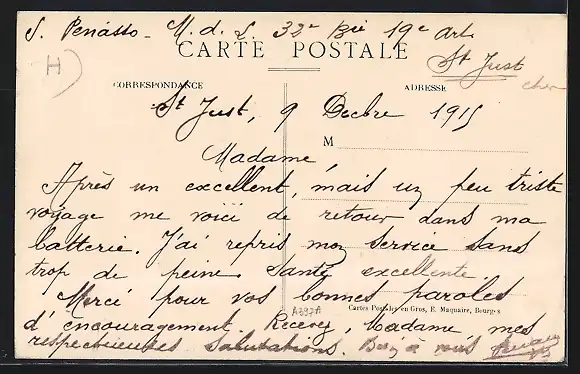 S. Penasso - M. d. L. 32e Bie 19e Art.
CARTE POSTALE
St Just
H
cher
CORRESPONDANCE
ADRESSE
St Just, 9 Decbre 1915
M
Madame,
Après un excellent, mais un peu triste
voyage me voici de retour dans ma
batterie. J'ai repris mon service sans
trop de peine. Santé excellente.
Merci pour vos bonnes paroles
A697A
Cartes Postales en Gros, E. Maquaire, Bourges
d'encouragement. Recevez, Madame mes
respectueuses salutations. à